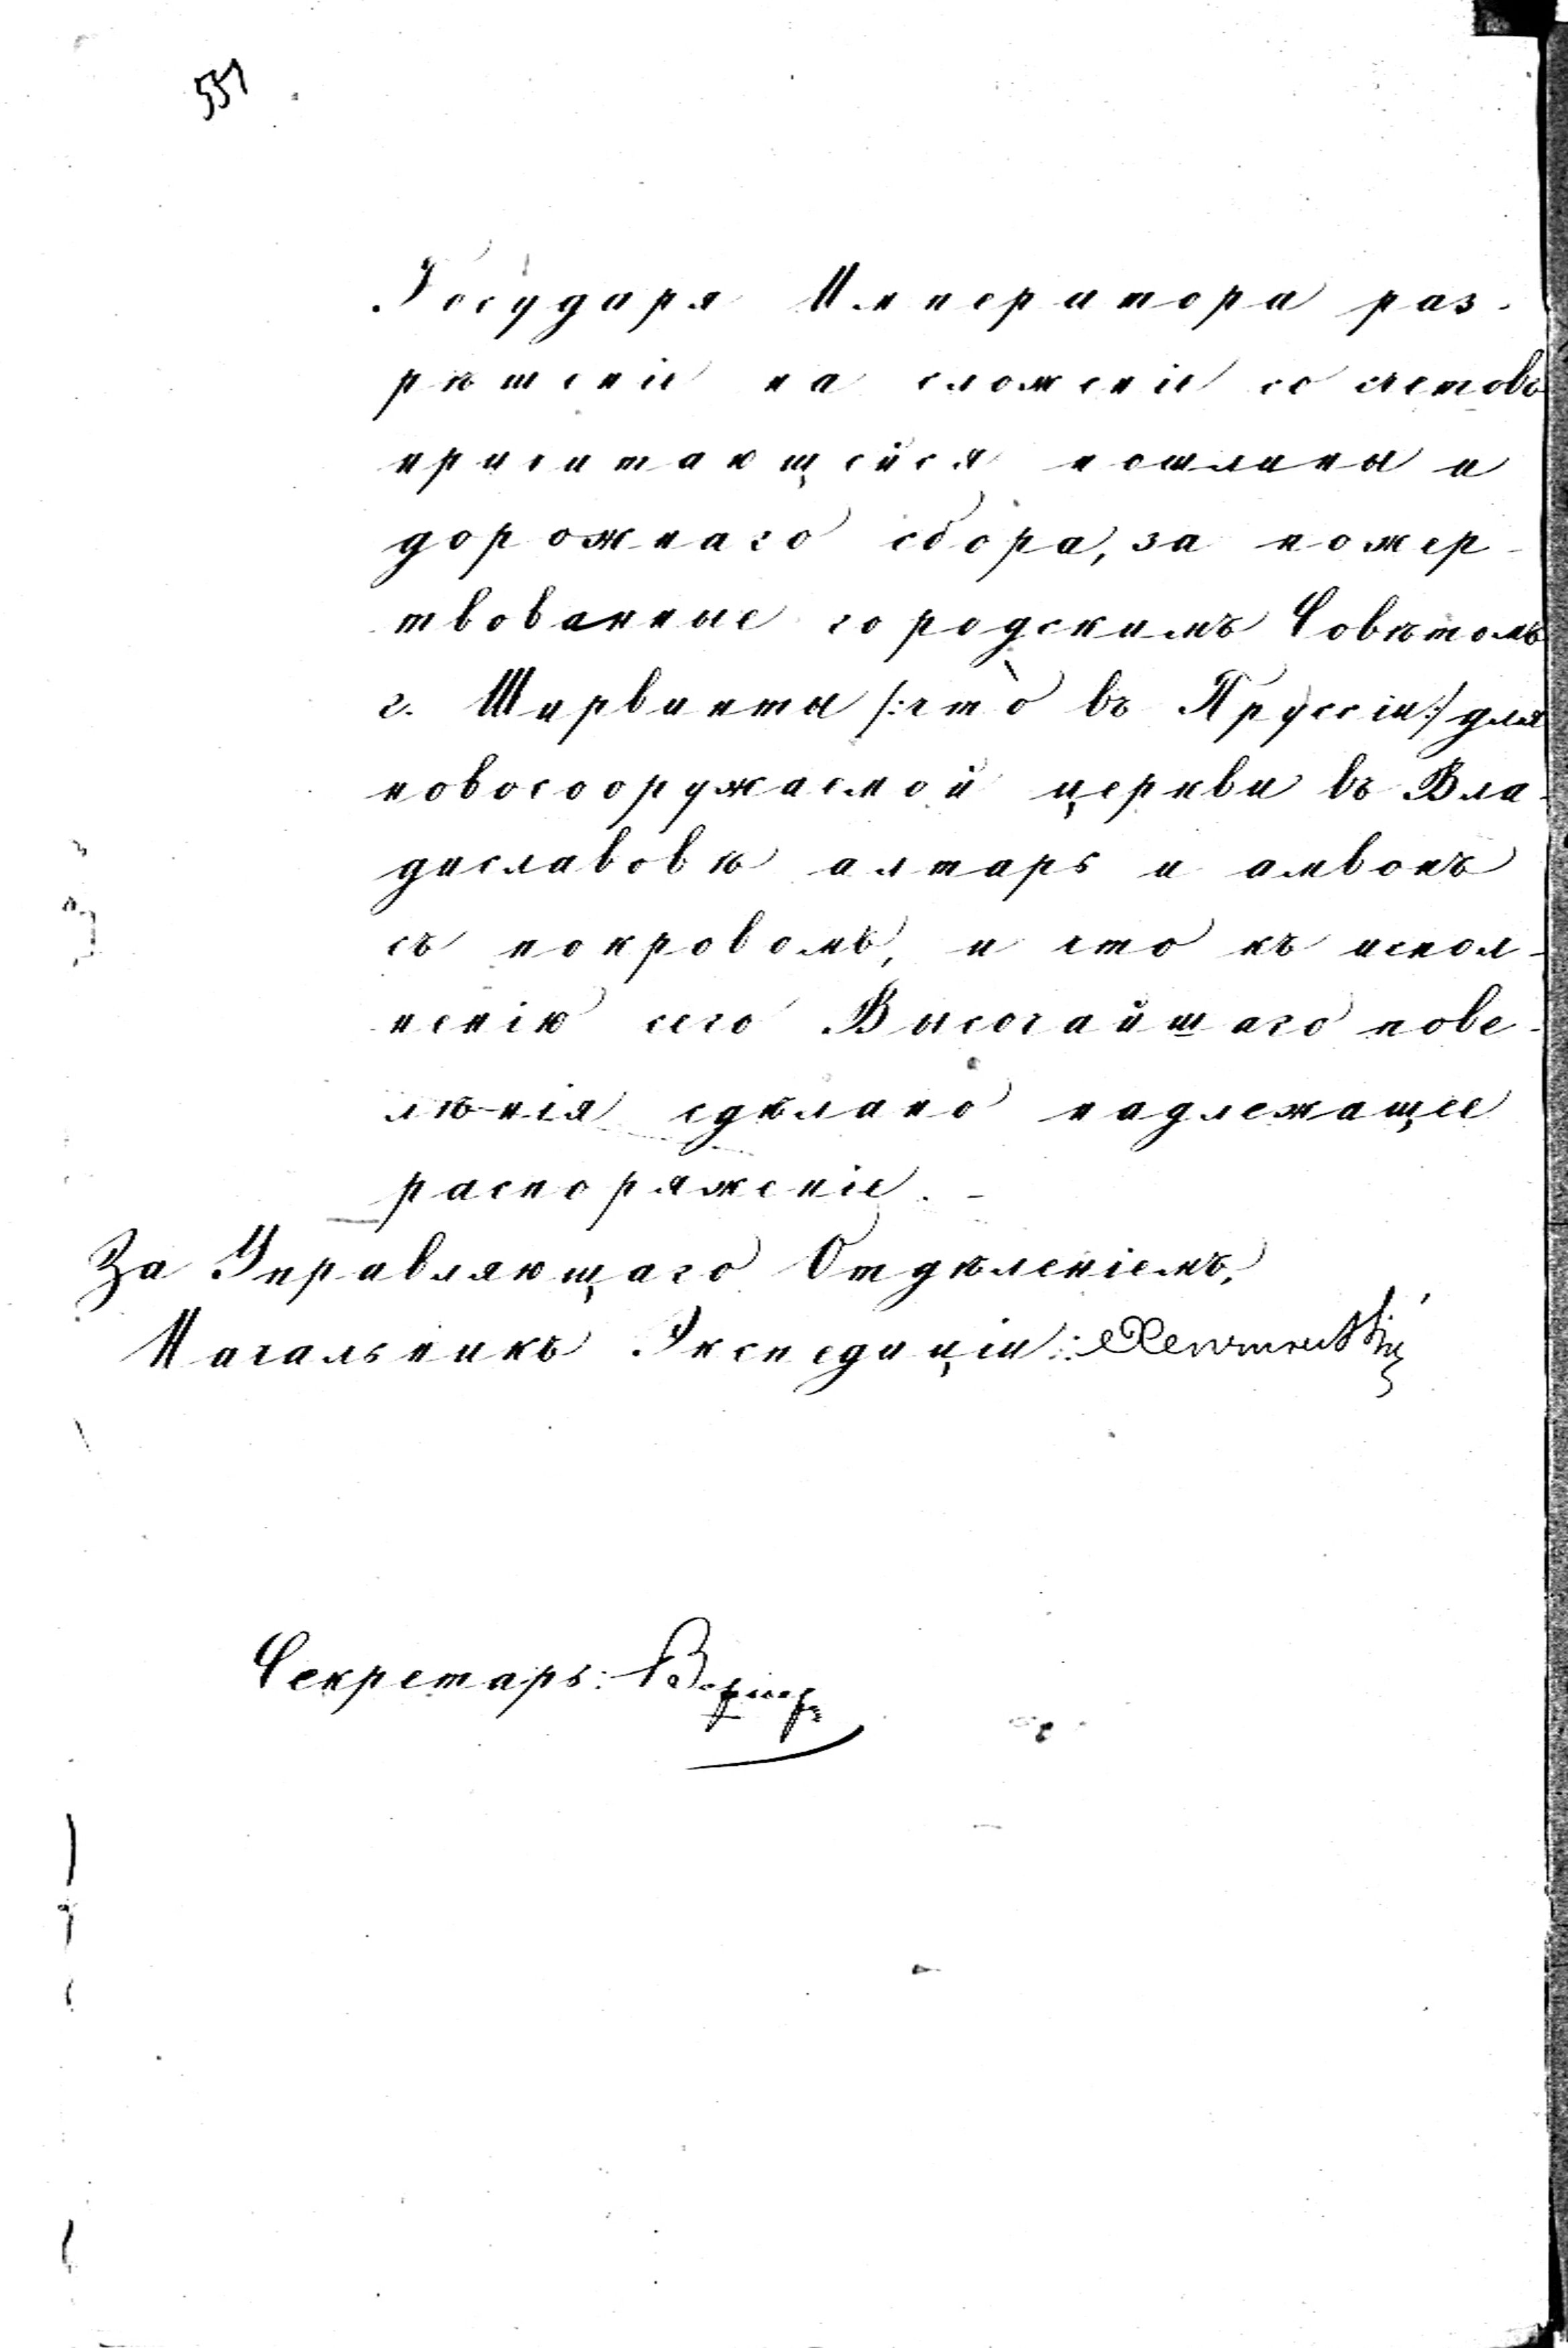 551
Государя Императора раз-
рѣшеніе на сложеніе со счетовъ
причитающейся пошлины и
дорожнаго сбора, за пожер-
твованные городскимъ Совѣтомъ
г. Ширвинты /:что въ Пруссіи:/ для
новосооружаемой церкви въ Вла-
диславовѣ алтарь и амвонъ
съ покровомъ, и что къ испол-
ненію сего Высочайшаго пове-
лѣнія сдѣлано надлежащее
распоряженіе. -
За Управляющаго Отдѣленіемъ,
Начальникъ Экспедиціи:
Секретарь: